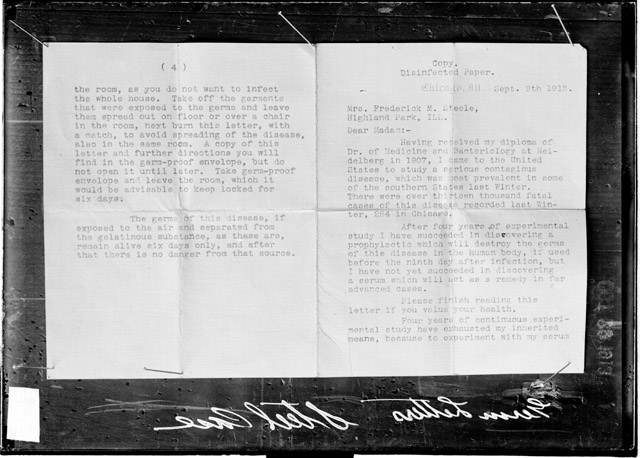 ( 4 )
the room, as you do not want to infect
the whole house. Take off the garments
that were exposed to the germs and leave
them spread out on floor or over a chair
in the room, next burn this letter, with
a match, to avoid spreading of the disease,
also in the same room. A copy of this
letter and further directions you will
find in the germ-proof envelope, but do
not open it until later. Take germ-proof
envelope and leave the room, which it
would be advisable to keep locked for
six days.
The germs of this disease, if
exposed to the air and separated from
the gelatinous substance, as these are,
remain alive six days only, and after
that there is no danger from that source.
Copy.
Disinfected Paper.
Chicago, Ill. Sept. 9th 1913.
Mrs. Frederick M. Steele,
Highland Park, Ill.
Dear Madam:-
Having received my diploma of
Dr. of Medicine and Bacteriology at Hei-
delberg in 1907, I came to the United
States to study a serious contagious
disease, which was most prevalent in some
of the southern States last Winter.
There were over thirteen thousand fatal
cases of this disease recorded last Win-
ter, 284 in Chicago.
After four years of experimental
study I have succeeded in discovering a
prophylactic which will destroy the germs
of this disease in the human body, if used
before the ninth day after infection, but
I have not yet succeeded in discovering
a serum which will act as a remedy in far
advanced cases.
Please finish reading this
letter if you value your health.
Four years of continuous experi-
mental study have exhausted my inherited
means, because to experiment with my serum
Germ Letters Steel Case